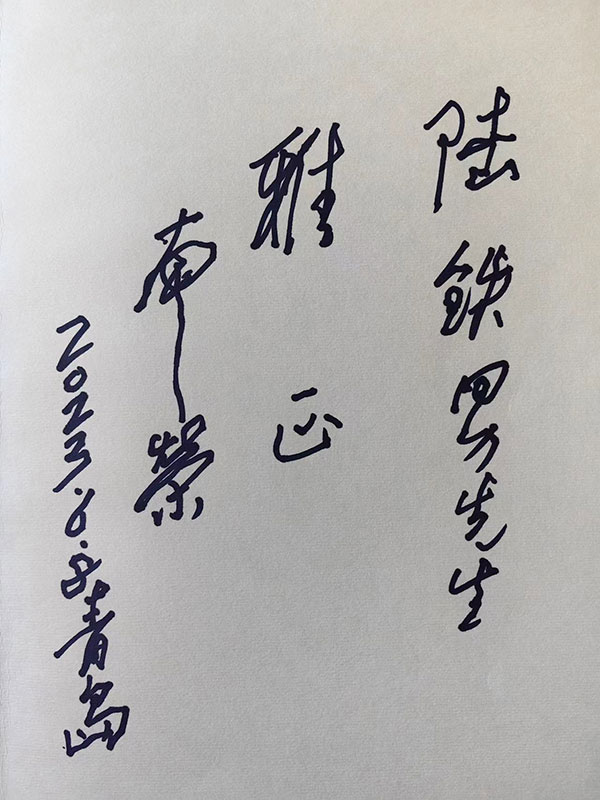 陆鉄男先生
雅正
南榮
2023.8.8青岛